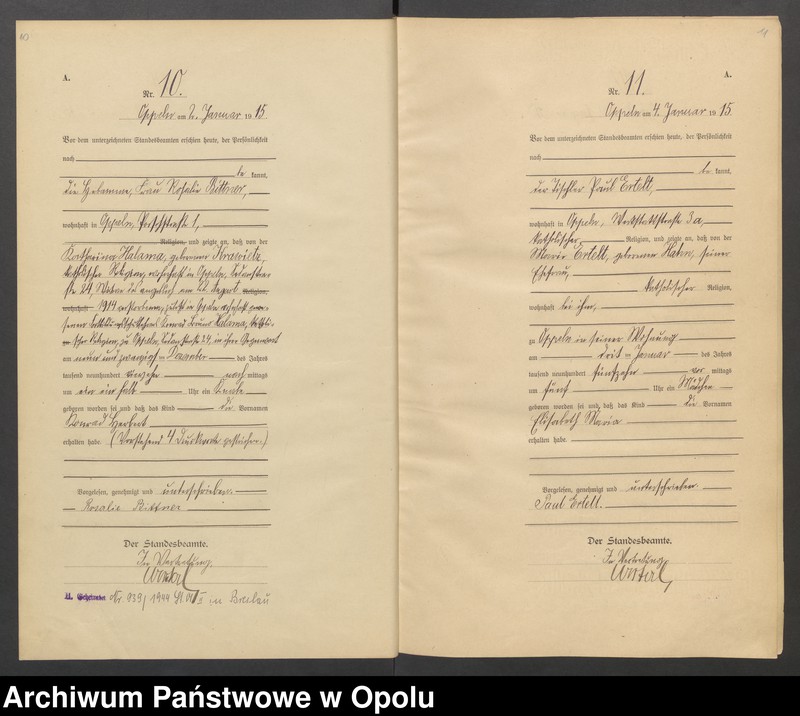 10
A.
Nr. 10.
Oppeln am 2. Januar 1915
Vor dem unterzeichneten Standesbeamten erschien heute, der Persönlichkeit
nach
be kannt,
die Hebamme, Frau Rosalie Bittner,
wohnhaft in Oppeln, 1,
Religion, und zeigte an, daß von der
Katharina Halama, geborenen
katholischer Religion, wohnhaft in Oppeln,
24, Witwe des am 22. August Religion,
wohnhaft 1914 verstorbenen, zuletzt in Oppeln wohnhaft
Konrad Halama,
Religion, zu Oppeln, 24, in ihrer Gegenwart
am neun und zwanzigsten Dezember des Jahres
tausend neunhundert vierzehn nachmittags
um ein halb Uhr ein Knabe
geboren worden sei und daß das Kind die Vornamen
Konrad Herbert
erhalten habe. (Vorstehend 4 Druckworte gestrichen.)
Vorgelesen, genehmigt und unterschrieben.
Rosalie Bittner
Der Standesbeamte.
In Vertretung.
H. Geheiratet Nr 939/1944 St. A. I in Breslau
11
A.
Nr. 11.
Oppeln am 4. Januar 1915
Vor dem unterzeichneten Standesbeamten erschien heute, der Persönlichkeit
nach
be kannt,
der Tischler Paul Ertelt,
wohnhaft in Oppeln, Werkstattstraße 3a,
katholischer Religion, und zeigte an, daß von der
Marie Ertelt, geborenen seiner
Ehefrau,
katholischer Religion,
wohnhaft bei ihm,
zu Oppeln in seiner Wohnung
am dritten Januar des Jahres
tausend neunhundert fünfzehn vormittags
um fünf Uhr ein Mädchen
geboren worden sei und daß das Kind die Vornamen
Elisabeth Maria
erhalten habe.
Vorgelesen, genehmigt und unterschrieben.
Paul Ertelt.
Der Standesbeamte.
In Vertretung
Archiwum Państwowe w Opolu